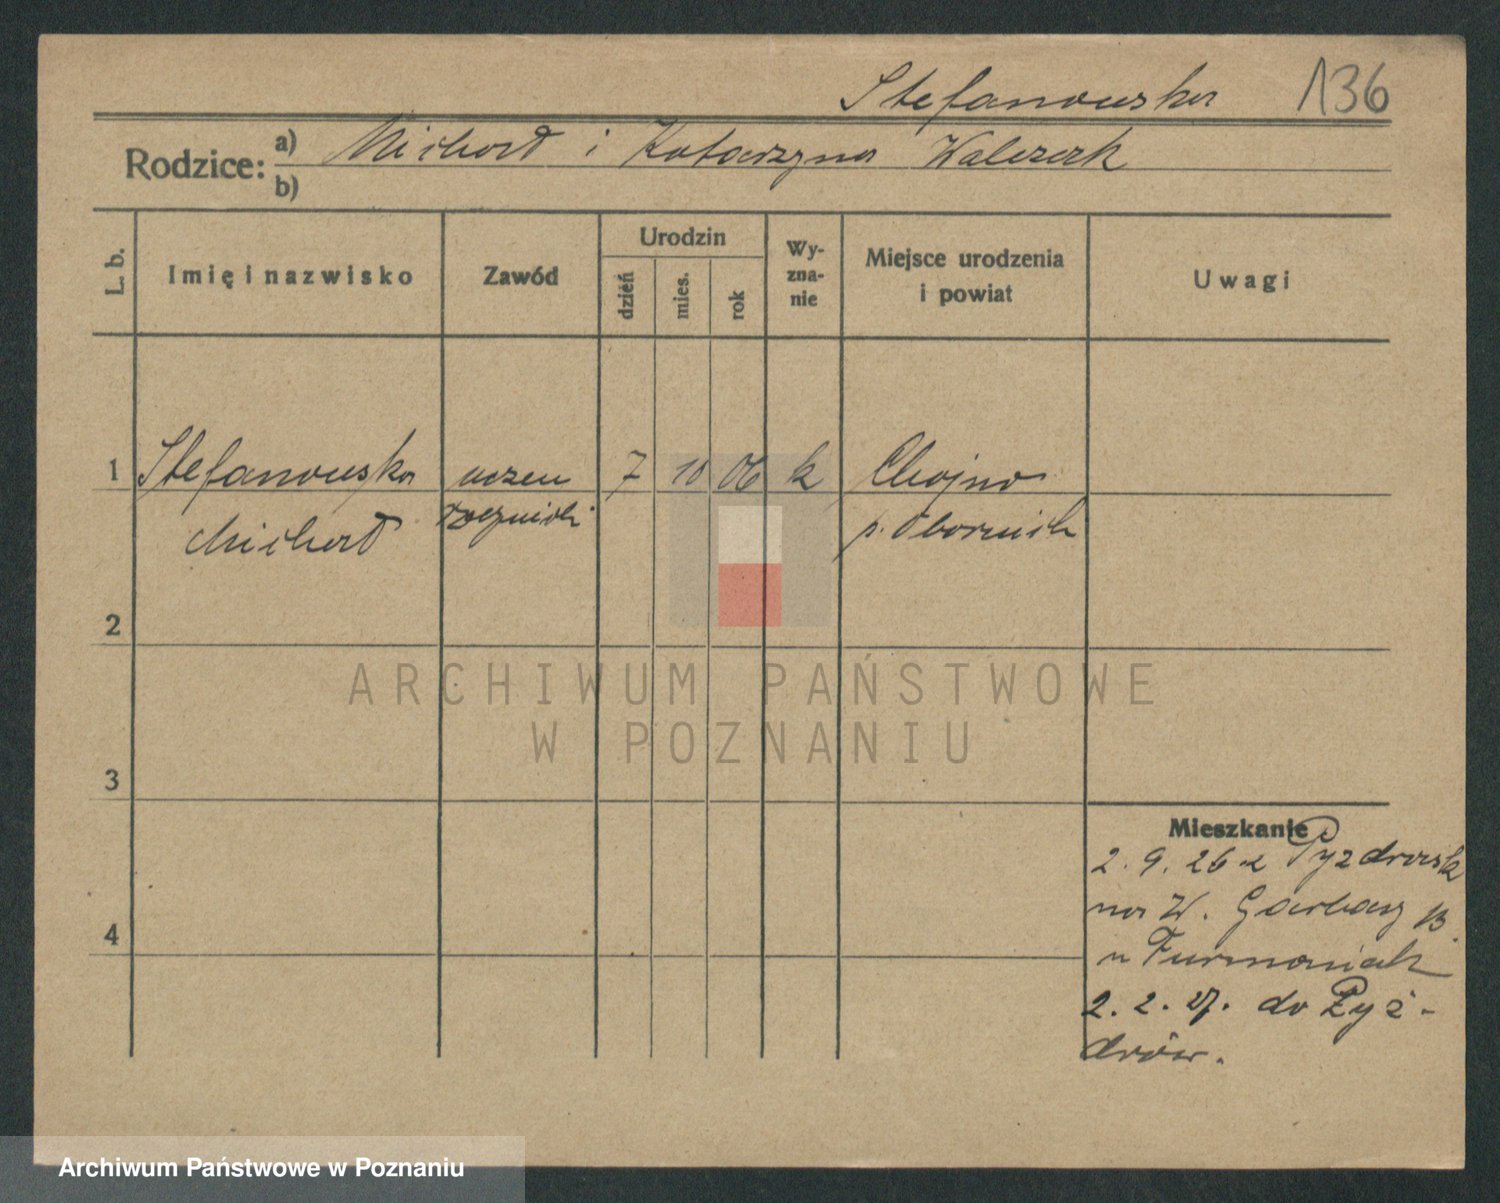 Stefanowska 136
Rodzice: a) Michał i Katarzyna Walczak
b)
L. b.
Imię i nazwisko
Zawód
Urodzin
dzień
mies.
rok
Wy-
zna-
nie
Miejsce urodzenia
i powiat
Uwagi
1 Stefanowska uczeń 7 10 06 k Chojno
Michał rzeźnicki p. Obornik
2
3
4
Mieszkanie
2. 9. 26 z Pyzdrowsk
na W. Garbary 13
u Furmaniak
2. 2. 27. do Pyz-
drów.
ARCHIWUM PAŃSTWOWE
W POZNANIU
Archiwum Państwowe w Poznaniu